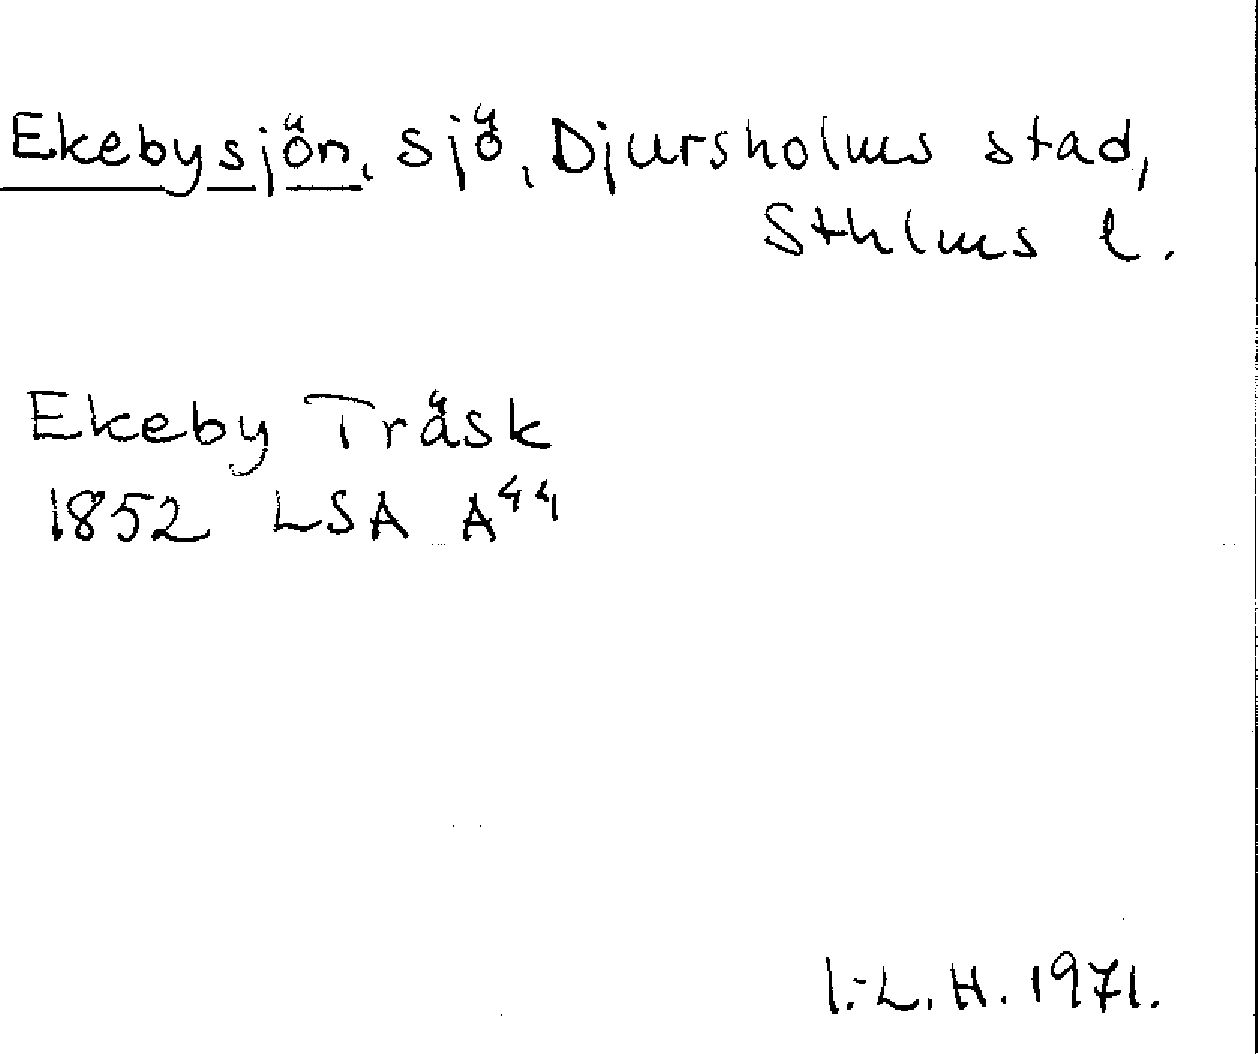 Ekebysjön, sjö, Djursholms stad,
Sthlms l.
Ekeby Träsk
1852 LSA A⁴⁴
I.-L. H. 1971.